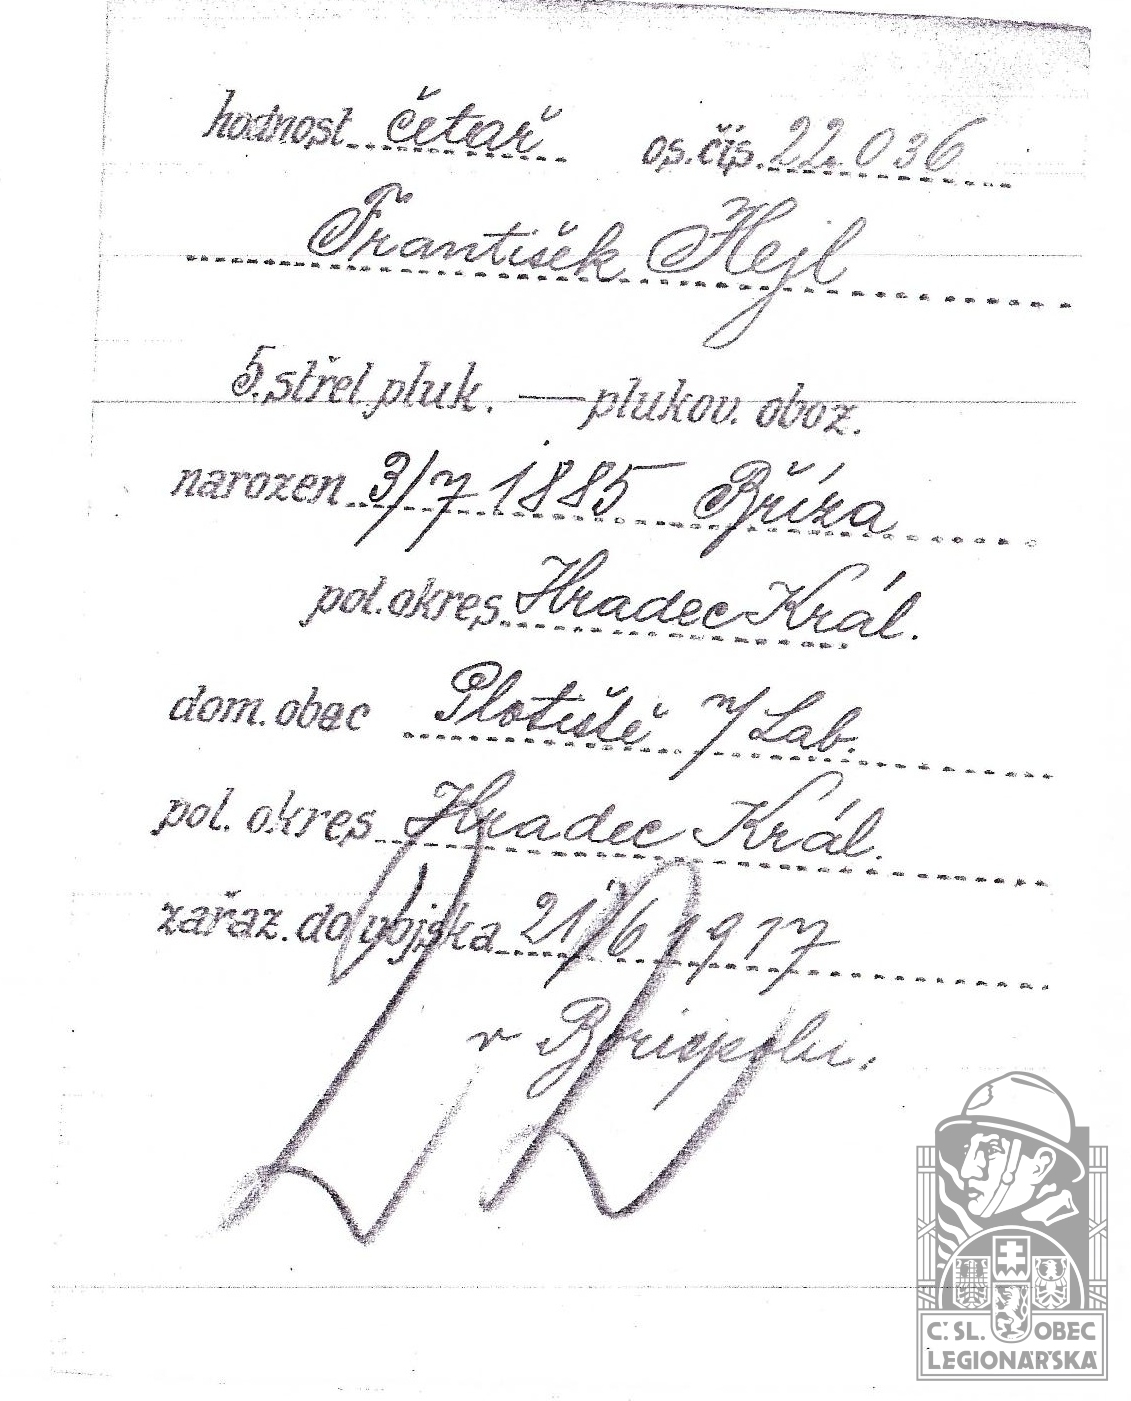 hodnost četař os. čís. 22.036
František Hejl
5. střel. pluk. — plukov. oboz.
narozen 3/7 1885 Bříza
pol. okres Hradec Král.
dom. obec Plotiště n/Lab.
pol. okres Hradec Král.
zařaz. do vojska 21/6 1917
v Borispolu.
Č. SL. OBEC
LEGIONÁŘSKÁ